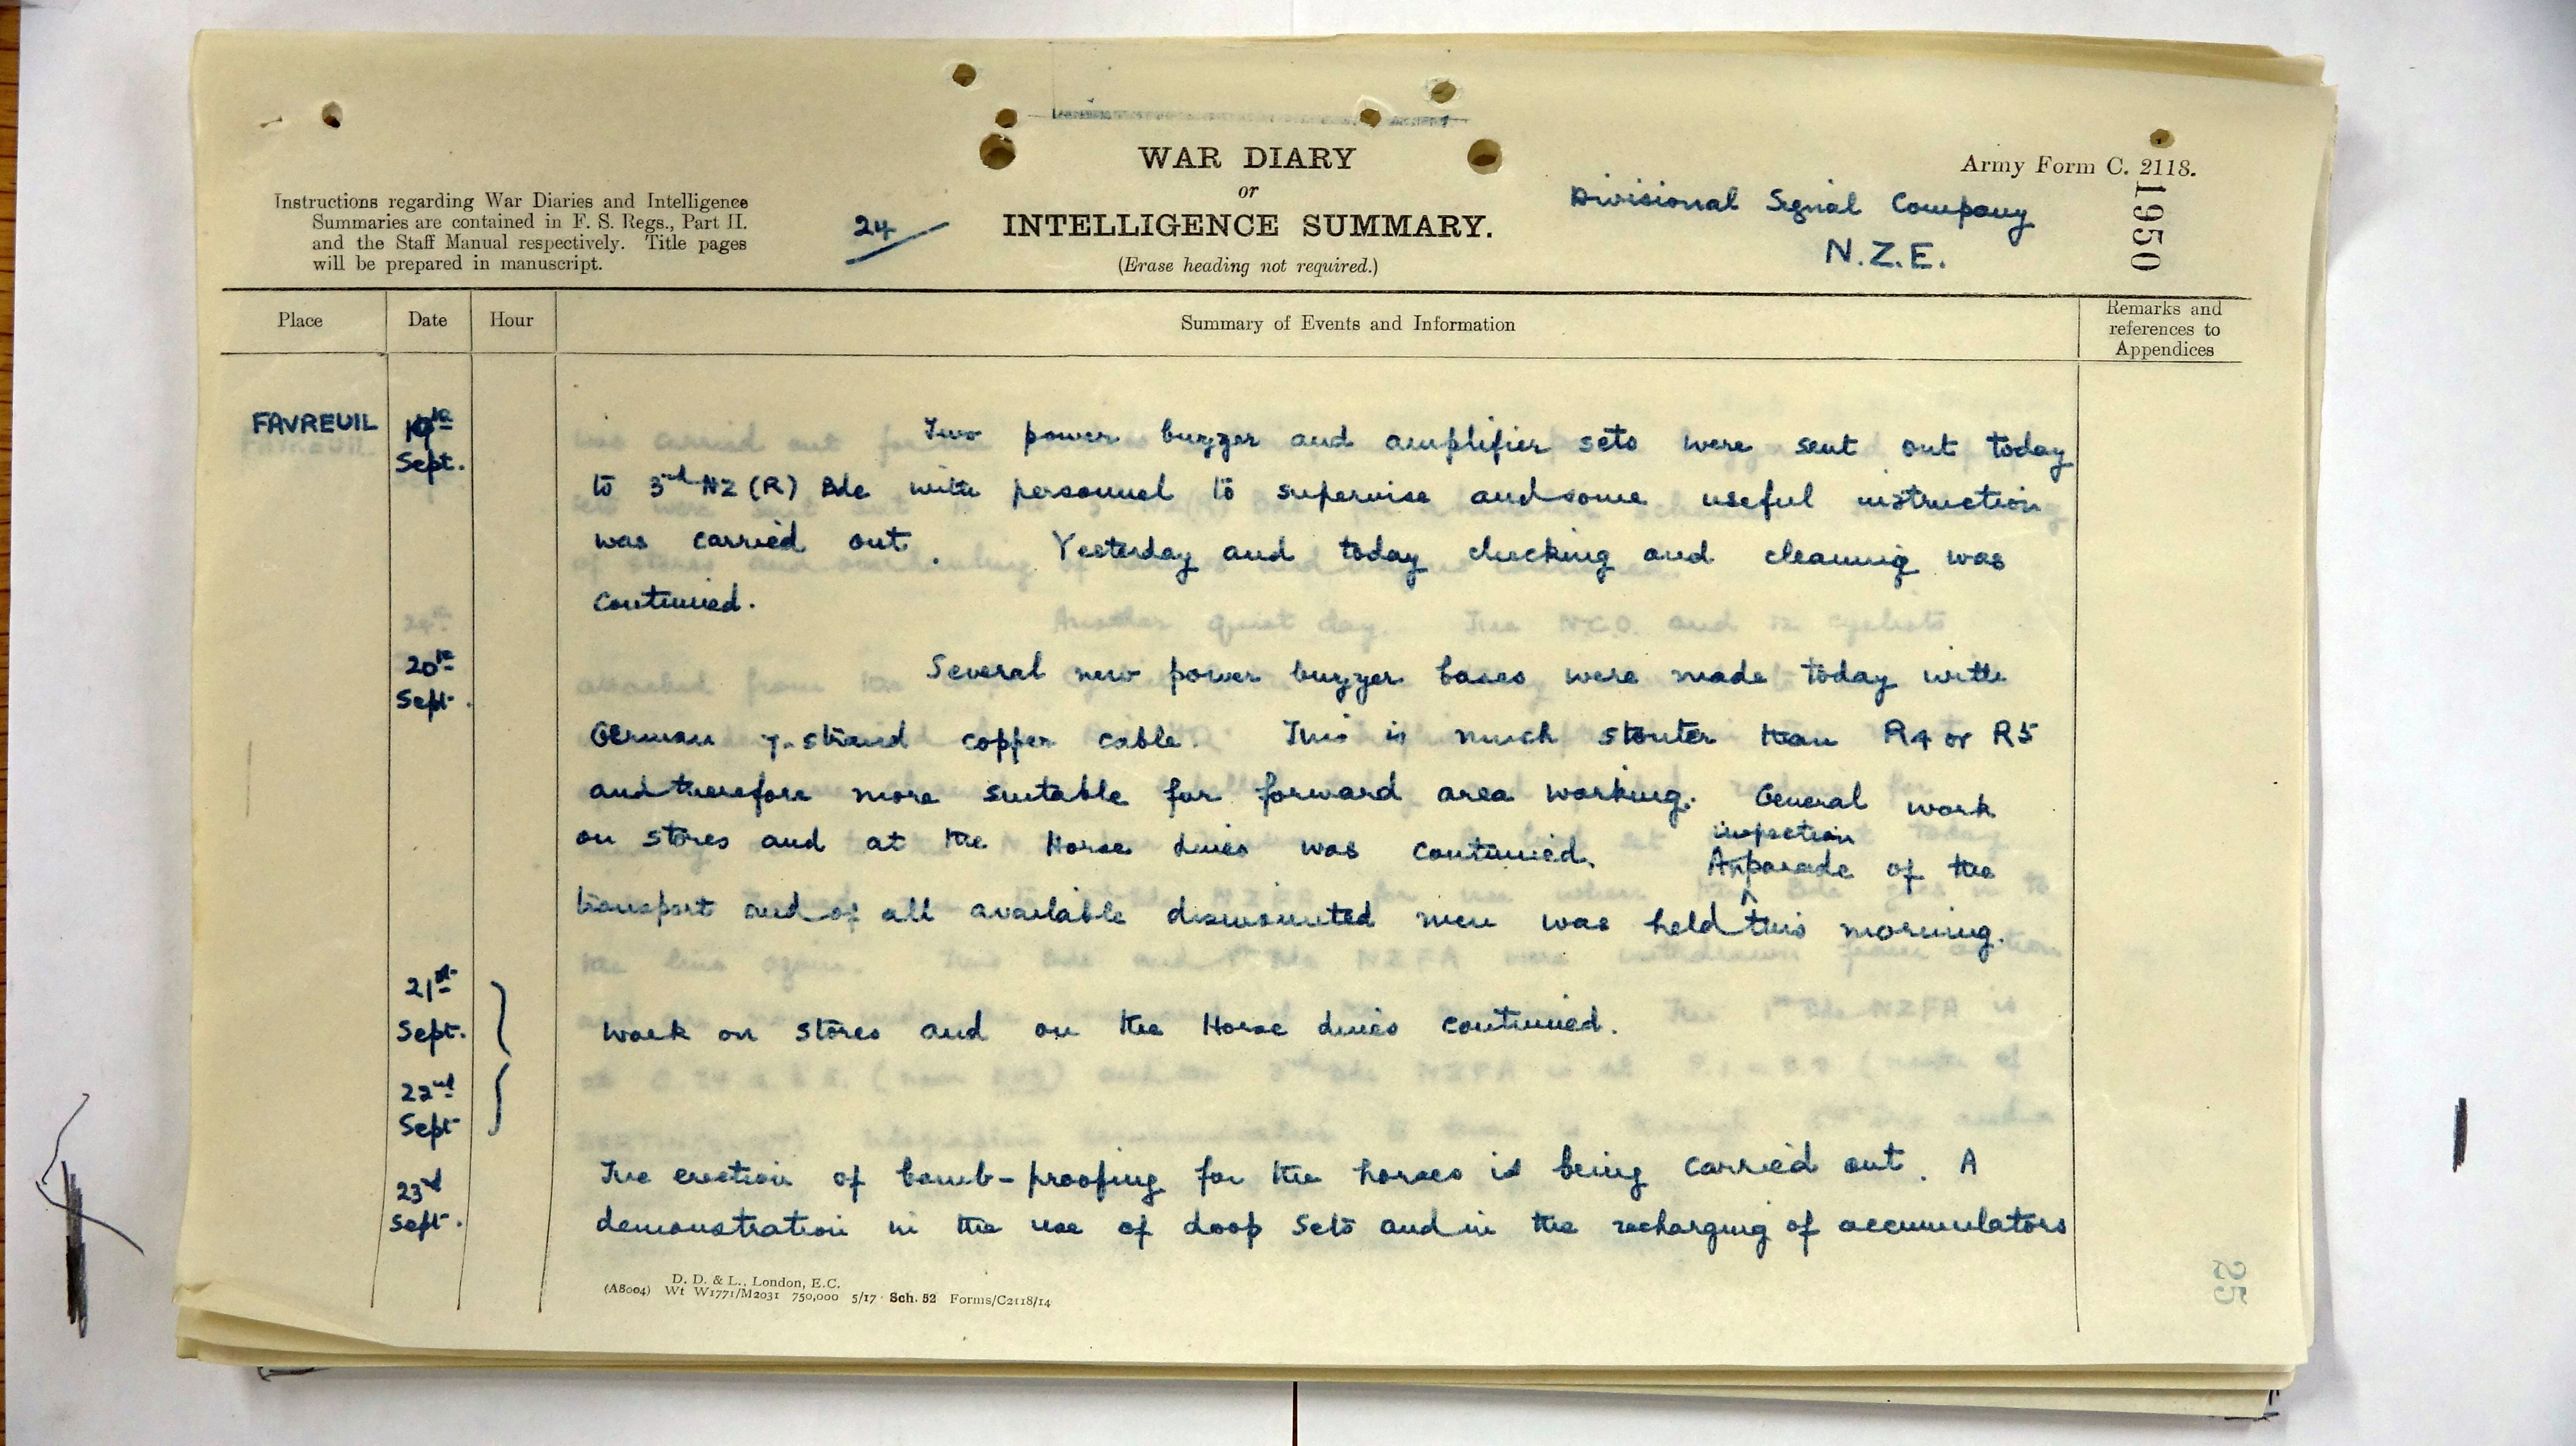 WAR DIARY
Army Form C. 2118.
or
INTELLIGENCE SUMMARY.
(Erase heading not required.)
Instructions regarding War Diaries and Intelligence
Summaries are contained in F. S. Regs., Part II.
and the Staff Manual respectively. Title pages
will be prepared in manuscript.
24
Divisional Signal Company
N.Z.E.
1950
Place
Date
Hour
Summary of Events and Information
Remarks and
references to
Appendices
FAVREUIL
19th
Sept.
Two power buzzer and amplifier sets were sent out today
to 3rd NZ (R) Bde with personnel to supervise and some useful instruction
was carried out. Yesterday and today checking and cleaning was
continued.
20th
Sept.
Several new power buzzer bases were made today with
German 7-strand copper cable. This is much stouter than R4 or R5
and therefore more suitable for forward area working. General work
on stores and at the Horse Lines was continued.
inspection
An parade of the
transport and of all available dismounted men was held this morning.
21st
Sept.
Work on stores and on the Horse Lines continued.
22nd
Sept
23rd
Sept.
The erection of bomb-proofing for the horses is being carried out. A
demonstration in the use of Loop Sets and in the recharging of accumulators
D. D. & L., London, E.C.
(A8004) Wt W1771/M2031 750,000 5/17 Sch. 52 Forms/C2118/14
25